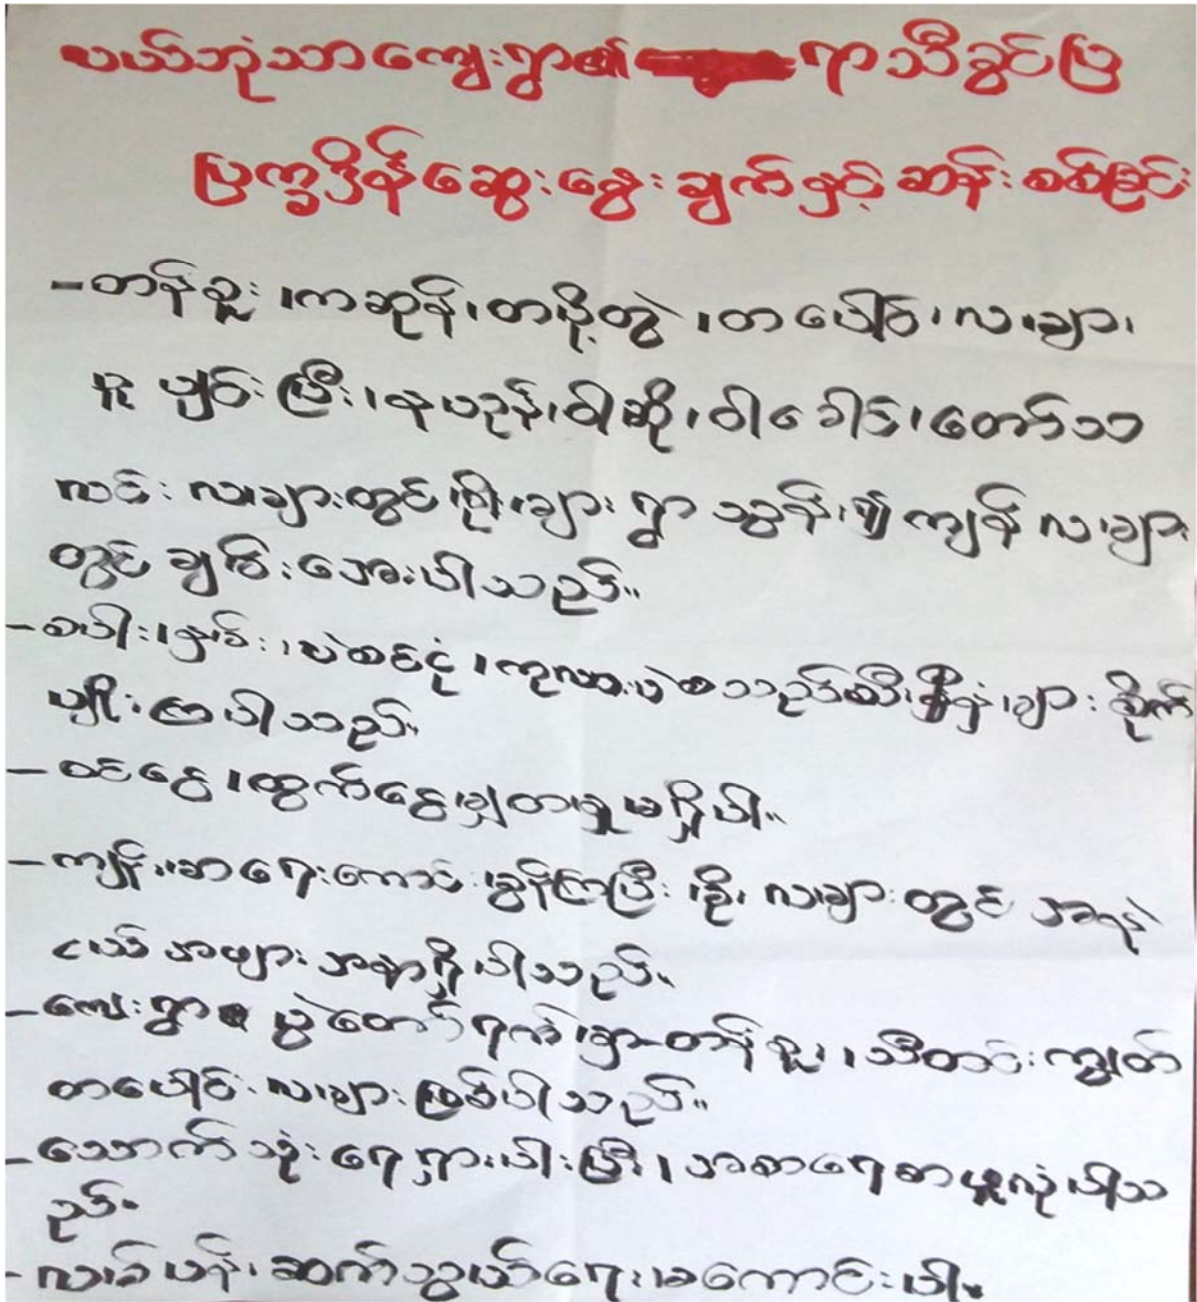 ပယ်ဘုံသာကျေးရွာ၏ ရာသီခွင်ပြ
ပြက္ခဒိန်ဆွေးနွေးချက်နှင့်ဆန်းစစ်ခြင်း
-တန်ခူး၊ကဆုန်၊တပို့တွဲ၊တပေါင်း၊လများ
ပူပြင်းပြီး၊နယုန်၊ဝါဆို၊ဝါခေါင်၊တော်သ
လင်းလများတွင်မိုးများရွာသွန်း၍ကျန်လများ
တွင်ချမ်းအေးပါသည်။
-စပါး၊နှမ်း၊ပဲစင်းငုံ၊ကုလားပဲ သီးနှံများစိုက်
ပျိုးကြပါသည်။
-ဝင်ငွေ၊ထွက်ငွေမျှတမှုမရှိပါ။
-ကျန်းမာရေးကောင်းမွန်ကြပြီး၊မိုးလများတွင်အနည်း
ငယ်အဖျားအနာရှိပါသည်။
-ကျေးရွာပွဲတော်ရက်များမှာတန်ခူး၊သီတင်းကျွတ်
တပေါင်းလများဖြစ်ပါသည်။
-သောက်သုံးရေရှားပါးပြီး၊အစာရေစာဖူလုံပါသ
ည်။
-လမ်းပန်းဆက်သွယ်ရေးမကောင်းပါ။